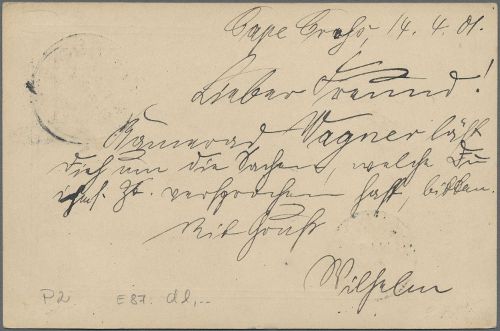 Cape Cross, 14. 4. 01.
Lieber Freund!
Kamerad Wagner läßt
Dich um die Sachen, welche Du
ihm s. Zt. versprochen hast, bitten.
Mit Gruß
Wilhelm
P2 E87. dd,..